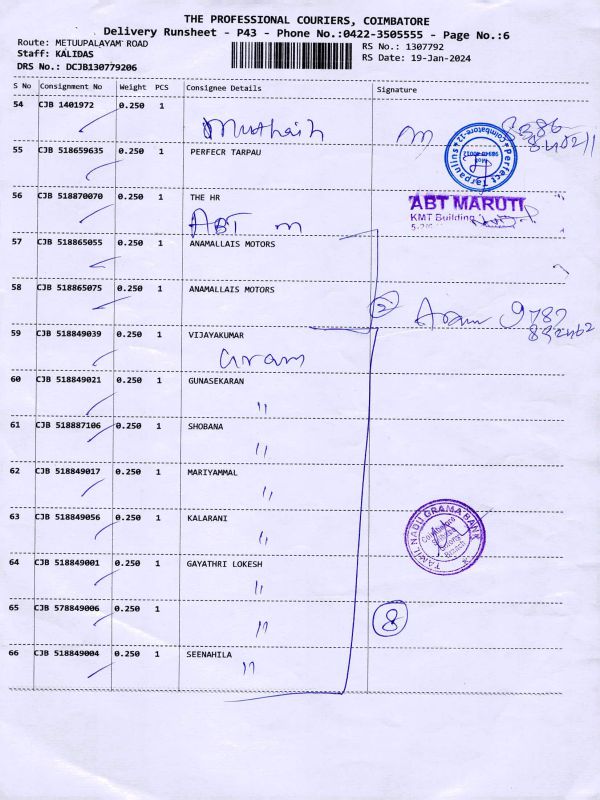 THE PROFESSIONAL COURIERS, COIMBATORE
Delivery Runsheet - P43 - Phone No.:0422-3505555 - Page No.:6
Route: METUUPALAYAM ROAD
RS No.: 1307792
Staff: KALIDAS
RS Date: 19-Jan-2024
DRS No.: DCJB130779206
S No Consignment No Weight PCS Consignee Details Signature
54 CJB 1401972 0.250 1
55 CJB 518659635 0.250 1 PERFECR TARPAU
Perfect Tarpaulins
Coimbatore-12
56 CJB 518870070 0.250 1 THE HR
ABT MARUTI
KMT Building
ABT m
57 CJB 518865055 0.250 1 ANAMALLAIS MOTORS
58 CJB 518865075 0.250 1 ANAMALLAIS MOTORS
2
59 CJB 518849039 0.250 1 VIJAYAKUMAR
Gram
60 CJB 518849021 0.250 1 GUNASEKARAN
"
61 CJB 518887106 0.250 1 SHOBANA
"
62 CJB 518849017 0.250 1 MARIYAMMAL
"
63 CJB 518849056 0.250 1 KALARANI
"
TAMIL NADU GRAMA BANK
Coimbatore
Branch
64 CJB 518849001 0.250 1 GAYATHRI LOKESH
"
65 CJB 578849006 0.250 1
"
8
66 CJB 518849004 0.250 1 SEENAHILA
"